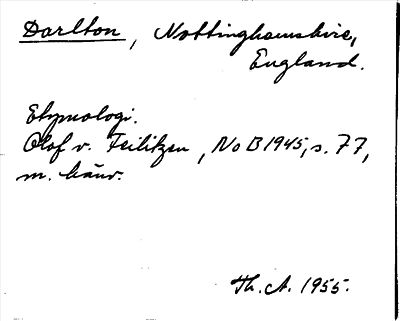 Darlton, Nottinghamshire,
England.
Etymologi.
Olof v. Feilitzen, NoB 1945, s. 77,
m. hänv.
Th. A. 1955.